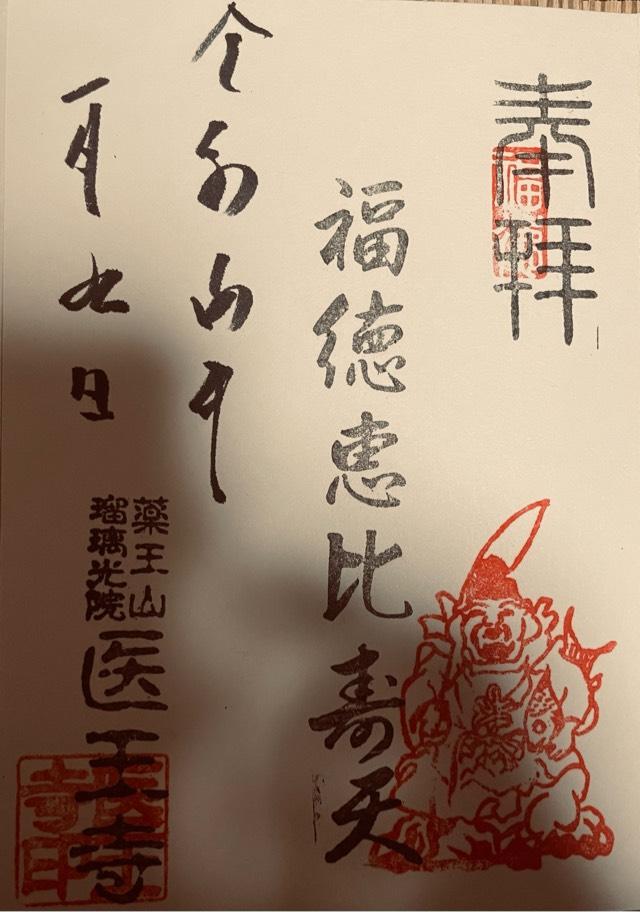 奉拝
福徳恵比寿天
令和年
一月九日
薬王山
瑠璃光院
医王寺